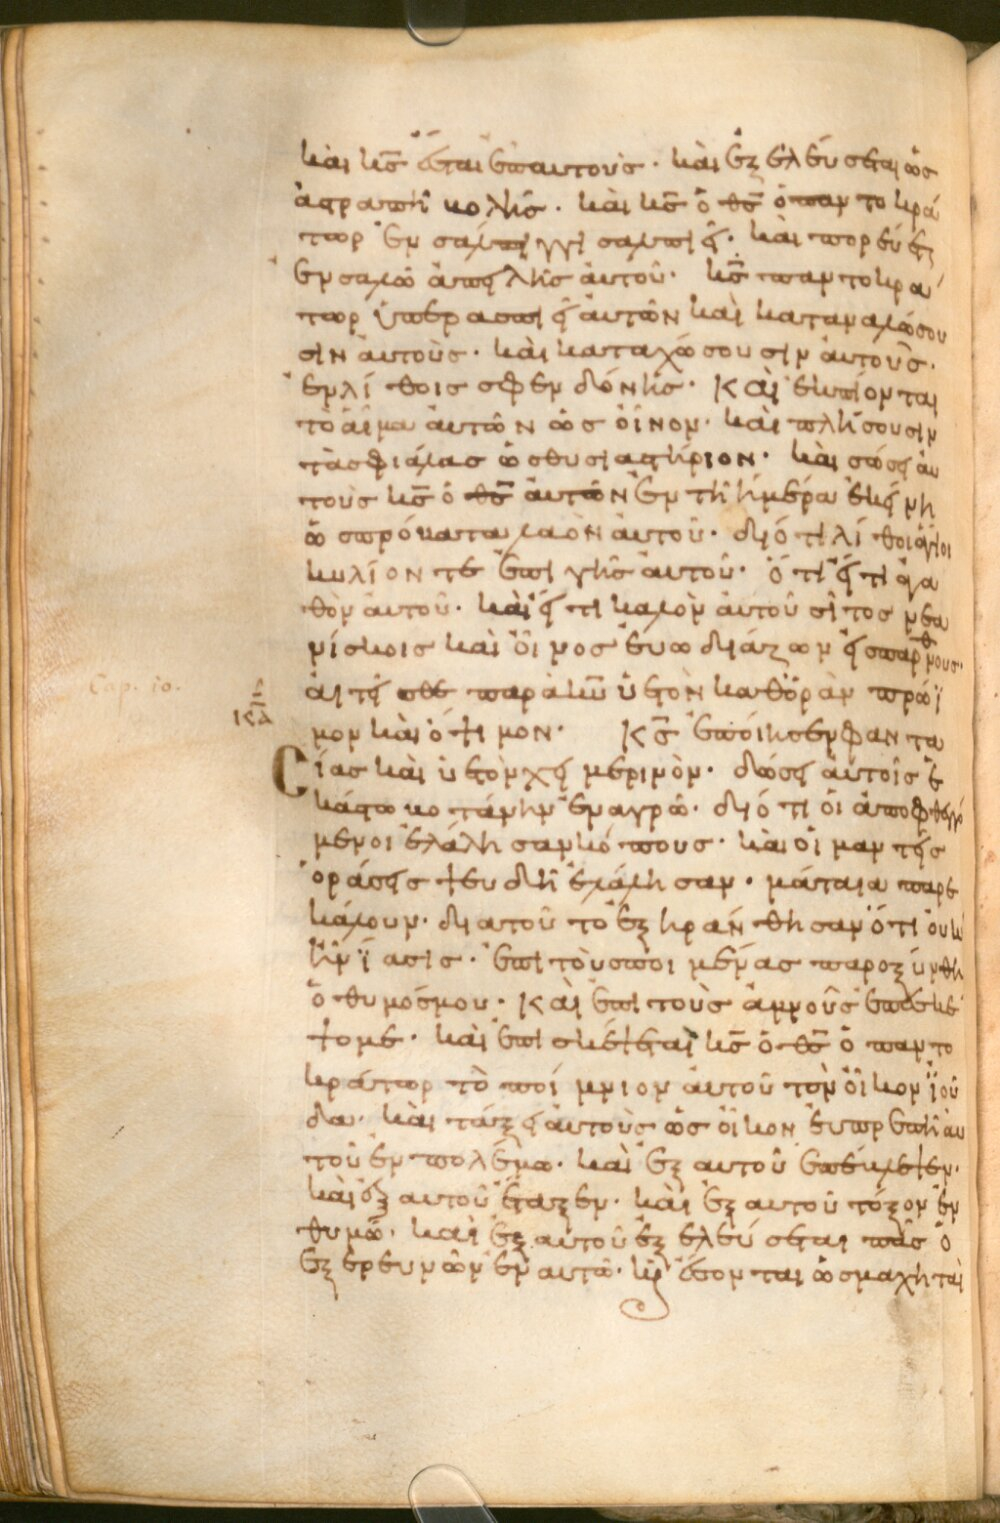 καὶ κ̅ς̅ ἔσται ἐπαυτοὺς· καὶ ἐξελεύσεται ὡς
ἀστραπὴ βολὴς· καὶ κ̅ς̅ ὁ θ̅ς̅ ὁ παντοκρά
τωρ ἐν σάλπιγγι σαλπιεῖ· καὶ πορεύσεται
ἐν σάλω ἀπειλῆς ἀυτοῦ· κ̅ς̅ παντοκρά
τωρ ὑπερασπιεῖ ἀυτῶν καὶ καταναλώσου
σιν ἀυτοὺς· καὶ καταχώσουσιν ἀυτοὺς·
ἐν λίθοις σφενδόνης· Καὶ ἐκπίονται
τὸ ἇιμα ἀυτῶν ὡς ὀῖνον· καὶ πλήσουσιν
τὰς φιάλας ὡς θυσιαστήριον· καὶ σώσει ἀυ
τοὺς κ̅ς̅ ὁ θ̅ς̅ ἀυτῶν ἐν τῆ ἡμέρα ἐκείνη
ὡς πρόβατα λαὸν ἀυτοῦ· διότι λίθοι ἅγιοι
κυλίονται ἐπὶ γῆς ἀυτοῦ· ὅτι εἴ τι ἀγα
θὸν ἀυτοῦ· καὶ εἴ τι καλὸν ἀυτοῦ σῖτος νεα
νίσκοις καὶ ὀῖνος ἐυωδιάζων εἰς παρθένους·
ἀιτεῖσθε παρὰ κ̅υ̅ ὑετὸν καθ ὥραν πρώϊ
μον καὶ ὄψιμον· Κ̅ς̅ ἐποίησεν φαντα
Cap. 10.
σίας καὶ ὑετὸν χειμερινὸν· δώσει ἀυτοῖς ἑ
κάστω βοτάνην ἐν αγρῶ· διότι ὁι ἀποφθεγγό
μενοι ἐλάλησαν κόπους· καὶ ὁι μάντεις
ὁράσεις ψευδῆ ἐλάλησαν· μάταια παρε
κάλουν· διατοῦτο ἐξηράνθησαν ὅτι ὀυκ
ἦν ἴασις· ἐπὶ τοὺς ποιμένας παροξύνθη
ὁ θυμόσμου· Καὶ ἐπὶ τοὺς ἀμνοὺς ἐπισκέ
ψομε· καὶ ἐπισκέψεται κ̅ς̅ ὁ θ̅ς̅ ὁ παντο
κράτωρ τὸ ποίμνιον ἀυτοῦ τὸν ὄικον ἰού
δα· καὶ τάξει ἀυτοὺς ὡς ὄικον ἐυπρεπῆ ἀυ
τοῦ ἐν πολέμω· καὶ ἐξ αυτοῦ ἐπέκλεψεν·
καὶ ἐξ αυτοῦ ἔταξεν· καὶ ἐξ αυτοῦ τόξον ἐν
θυμῶ· καὶ ἐξ αυτοῦ ἐξελεύσεται πᾶς ὁ
ἐξερευνῶν ἐν αυτῶ· κ̀ ἔσονται ὡς μαχηταὶ